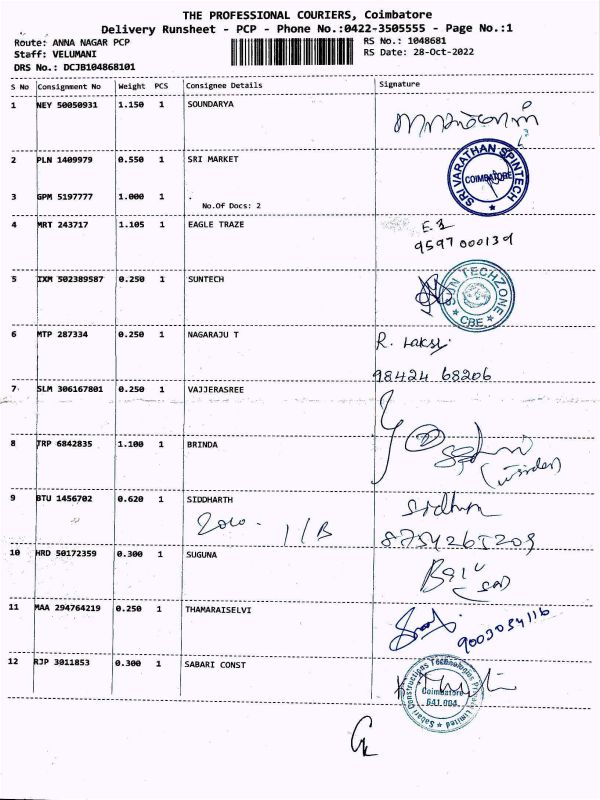 THE PROFESSIONAL COURIERS, Coimbatore
Delivery Runsheet - PCP - Phone No.:0422-3505555 - Page No.:1
Route: ANNA NAGAR PCP
RS No.: 1048681
Staff: VELUMANI
RS Date: 28-Oct-2022
DRS No.: DCJB104868101
S No Consignment No Weight PCS Consignee Details Signature
1 NEY 50050931 1.150 1 SOUNDARYA
2 PLN 1409979 0.550 1 SRI MARKET
SRI VARATHAN SPINTECH
COIMBATORE
3 GPM 5197777 1.000 1 .
No.Of Docs: 2
4 MRT 243717 1.105 1 EAGLE TRAZE
9597000139
5 IXM 502389587 0.250 1 SUNTECH
SUN TECHZONE
* CBE *
6 MTP 287334 0.250 1 NAGARAJU T R.
98424 68206
7 SLM 306167801 0.250 1 VAJJERASREE
8 TRP 6842835 1.100 1 BRINDA
9 BTU 1456702 0.620 1 SIDDHARTH
8754265209
10 HRD 50172359 0.300 1 SUGUNA
11 MAA 294764219 0.250 1 THAMARAISELVI
9003034116
12 RJP 3011853 0.300 1 SABARI CONST
Sabari Constructions Technologies Private Limited
Coimbatore
641 004